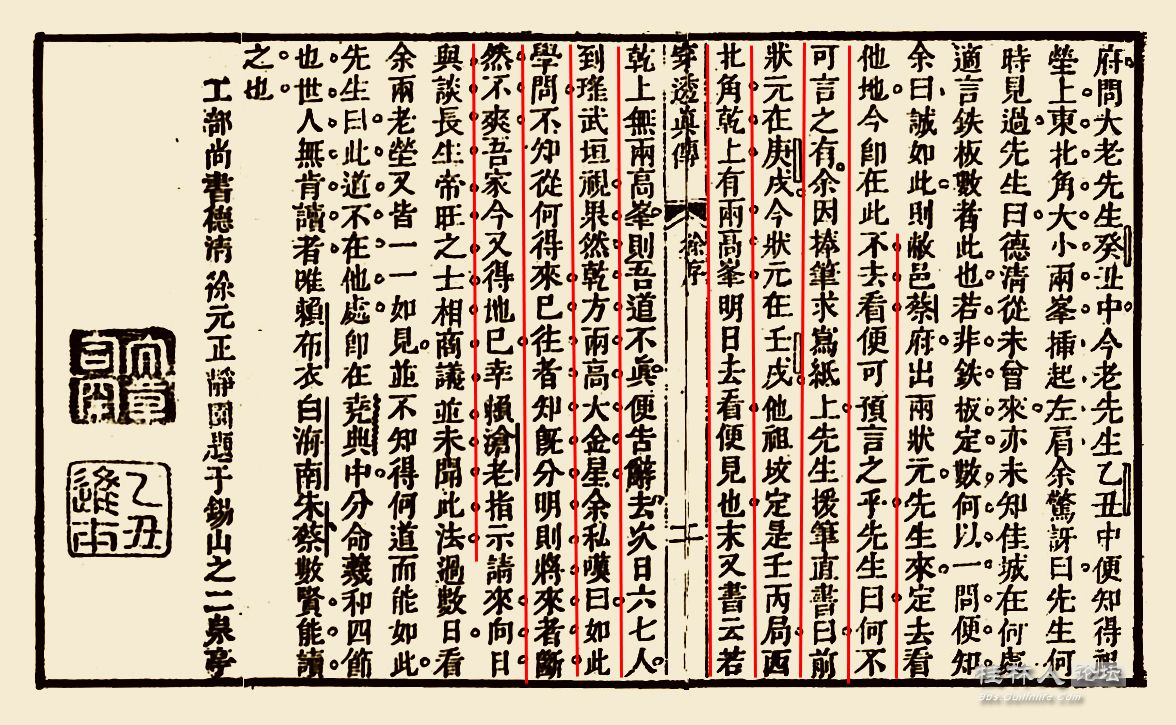 府問大老先生癸丑中今老先生乙丑中便知得祖
塋上東北角大小兩峯挿起左肩余驚訝曰先生何
時見過先生曰德淸從未曾來亦未知佳城在何處
適言鉄板數者此也若非鉄板定數何以一問便知
余曰誠如此則敝邑蔡府出兩狀元先生來定去看
他地今卽在此不去看便可預言之乎先生曰何不
可言之有余因捧筆求寫紙上先生援筆直書曰前
狀元在庚戌今狀元在壬戌他祖坟定是壬丙局西
北角乾上有兩高峯明日去看便見也末又書云若
穿透眞傳 徐序 二
乾上無兩高峯則吾道不眞便吿辭去次日六七人
到璀武垣視果然乾方兩高大金星余私嘆曰如此
學問不知從何得來已往者知旣分明則將來者斷
然不爽吾家今又得地已幸賴滄老指示請來向日
與談長生帝旺之士相商議並未聞此法過數日看
余兩老塋又皆一一如見並不知得何道而能如此
先生曰此道不在他處卽在堯典中分命羲和四節
也世人無肯讀者唯賴布衣白海南朱蔡數賢能讀
之也
工部尚書德淸徐元正靜園題于錫山之二泉亭
乙丑
桂林人论坛
bbs.guilinlife.com